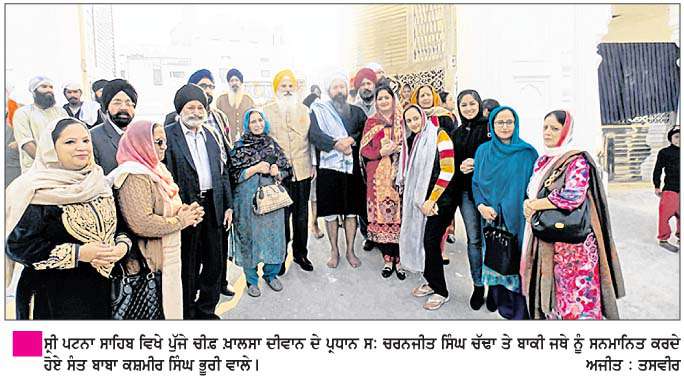 ਸ੍ਰੀ ਪਟਨਾ ਸਾਹਿਬ ਵਿਖੇ ਪੁੱਜੇ ਚੀਫ਼ ਖ਼ਾਲਸਾ ਦੀਵਾਨ ਦੇ ਪ੍ਰਧਾਨ ਸ: ਚਰਨਜੀਤ ਸਿੰਘ ਚੱਢਾ ਤੇ ਬਾਕੀ ਜਥੇ ਨੂੰ ਸਨਮਾਨਿਤ ਕਰਦੇ
ਹੋਏ ਸੰਤ ਬਾਬਾ ਕਸ਼ਮੀਰ ਸਿੰਘ ਭੂਰੀ ਵਾਲੇ। ਅਜੀਤ : ਤਸਵੀਰ